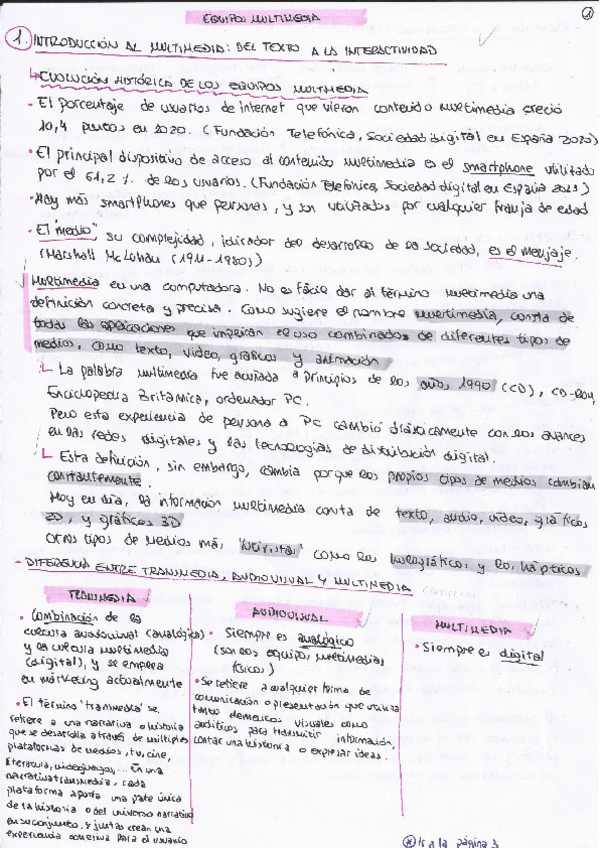 EQUIPOS MULTIMEDIA
1. INTRODUCCIÓN AL MULTIMEDIA: DEL TEXTO A LA INTERACTIVIDAD
EVOLUCIÓN HISTÓRICA DE LOS EQUIPOS MULTIMEDIA
- El porcentaje de usuarios de internet que vieron contenido multimedia creció
10,4 puntos en 2020. (Fundación Telefónica, Sociedad digital en España 2020)
· El principal dispositivo de acceso al contenido multimedia es el smartphone utilizado
por el 61,2 % de los usuarios. (Fundación Telefónica, Sociedad digital en España 2023)
· Hay más smartphones que personas, y son utilizados por cualquier franja de edad
· El medio" su complejidad, indicador del desarrollo de la sociedad, es el mensaje.
(Marshall McLuhan (1911-1980))
Multimedia en una computadora. No es fácil dar al término multimedia una
definición concreta y precisa. Como sugiere el nombre multimedia, consta de
todas las aplicaciones que implican el uso combinados de diferentes tipos de
medios, como texto, video, gráficos y animación
La palabra multimedia fue acuñada a principios de los años 1990 (CD), CD-ROM,
Enciclopedia Britanica, ordenador PC.
Pero esta experiencia de persona a PC cambio drásticamente con los avances
en las redes digitales y las tecnologías de distribución digital.
Esta definición, sin embargo, cambia porque los propios tipos de medios cambian
constantemente.
Hoy en día, la información multimedia consta de texto, audio, video, gráficos
2D, y gráficos 3D
Otros tipos de medios más "futuristas" como los holográficos y los hápticos
- DIFERENCIA ENTRE TRANSMEDIA, AUDIOVISUAL Y MULTIMEDIA
TRANSMEDIA
· Combinación de la
cultura audiovisual (analógica)
y la cultura multimedia
(digital), y se emplea
en márketing actualmente
· El término 'transmedia' se
refiere a una narrativa o historia
que se desarrolla a través de múltiples
plataformas de medios, tv, cine,
literatura, videojuegos,... En una
narrativa transmedia, cada
plataforma aporta una parte única
de la historia o del universo narrativo
en su conjunto, y juntas crean una
experiencia para el usuario
AUDIOVISUAL
· Siempre es analógico
(son los equipos multimedias
físicos)
· Se refiere a cualquier forma de
comunicación o presentación que utiliza
tanto elementos visuales como
auditivos para transmitir información,
contar una historia o expresar ideas.
MULTIMEDIA
· Siempre es digital
Ir a la página 3